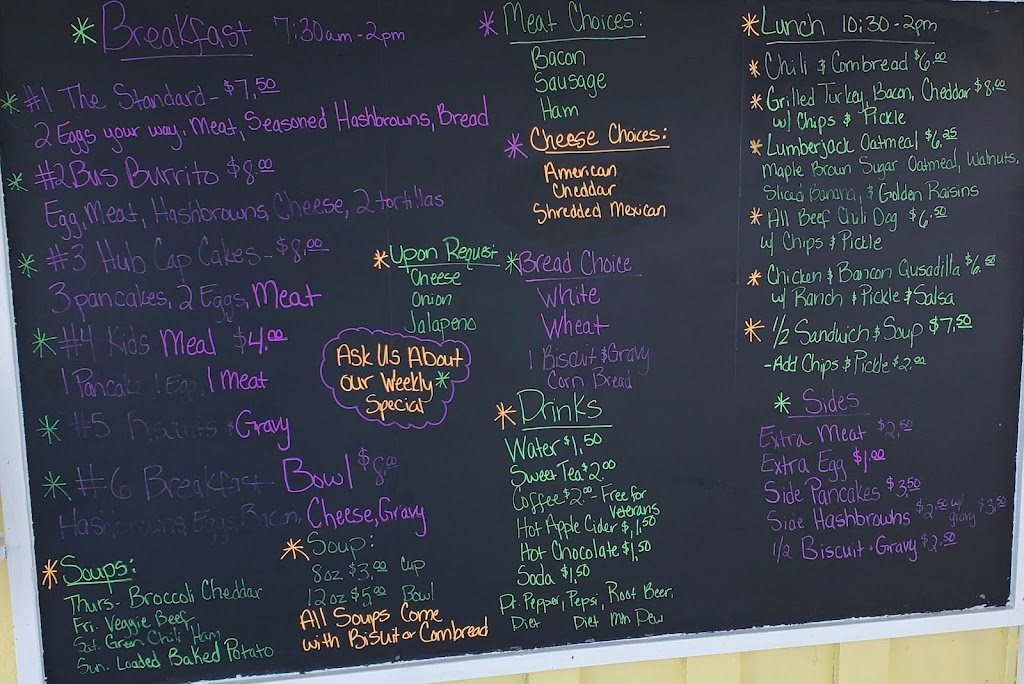 Breakfast 7:30am-2pm
#1 The Standard- $7,50
2 Eggs your way, Meat, Seasoned Hashbrowns, Bread
#2 Bus Burrito $8.00
Egg, Meat, Hashbrowns, Cheese, 2 tortillas
#3 Hub Cap Cakes- $8,00
3 pancakes, 2 Eggs, Meat
#4 Kids Meal $4.00
1 Pancake 1 Egg, 1 Meat
#5 Biscuits & Gravy
#6 Breakfast Bowl $8.00
Hashbrowns, Eggs, Bacon, Cheese, Gravy
Soups:
Thurs- Broccoli Cheddar
Fri. Veggie Beef
Sat. Green Chili Ham
Sun. Loaded Baked Potato
Soup:
8oz $3.00 Cup
12oz $5.00 Bowl
All Soups Come
with Bisuit or Cornbread
Upon Request
Cheese
Onion
Jalapeno
Ask Us About
our Weekly
Special
Meat Choices:
Bacon
Sausage
Ham
Cheese Choices:
American
Cheddar
Shredded Mexican
Bread Choice
White
Wheat
1 Biscuit & Gravy
Corn Bread
Drinks
Water $1,50
Sweet Tea $2.00
Coffee $2.00- Free for
veterans
Hot Apple Cider $1,50
Hot Chocolate $1,50
Soda $1,50
Dr. Pepper, Pepsi, Root Beer,
Diet Diet Mtn Dew
Lunch 10:30-2pm
Chili & Cornbread $6.00
Grilled Turkey, Bacon, Cheddar $8,00
w/ Chips & Pickle
Lumberjack Oatmeal $6,25
Maple Brown Sugar Oatmeal, Walnuts,
Sliced Banana, & Golden Raisins
All Beef Chili Dog $6,50
w/ Chips & Pickle
Chicken & Bancon Qusadilla $6,50
w/ Ranch & Pickle & Salsa
1/2 Sandwich & Soup $7,50
-Add Chips & Pickle $2,00
Sides
Extra Meat $2,50
Extra Egg $1,00
Side Pancakes $3,50
Side Hashbrowns $2,50 w/ gravy $3,50
1/2 Biscuit & Gravy $2,50